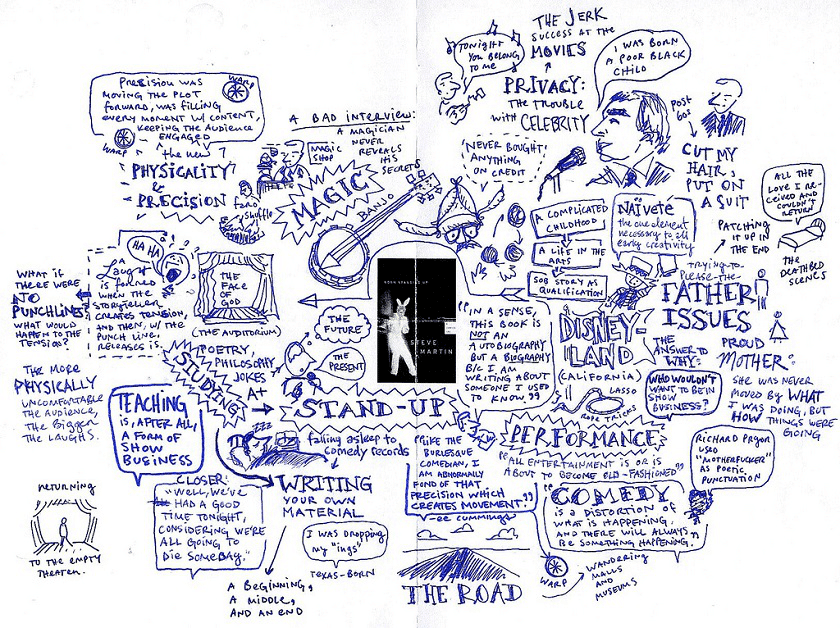 PRECISION WAS
MOVING THE PLOT
FORWARD, WAS FILLING
EVERY MOMENT W/ CONTENT,
KEEPING THE AUDIENCE
ENGAGED
WARP
WARP
the new ?
PHYSICALITY
& PRECISION
A BAD INTERVIEW:
A MAGICIAN
NEVER
REVEALS
HIS
SECRETS
MAGIC
SHOP
MAGIC
faro
shuffle
BANJO
TONIGHT
YOU BELONG
TO ME
THE JERK
SUCCESS AT THE
MOVIES
I WAS BORN
A POOR BLACK
CHILD
PRIVACY:
THE TROUBLE
with CELEBRITY
'NEVER BOUGHT
ANYTHING
ON CREDIT
POST
60s
CUT MY
HAIR,
PUT ON
A SUIT
ALL THE
LOVE I RE-
CEIVED AND
COULDN'T
RETURN
THE
DEATHBED
SCENES
PATCHING
IT UP IN
THE END
NAÏVETÉ
the one element
necessary to all
early creativity
A COMPLICATED
CHILDHOOD
A LIFE IN THE
ARTS
SOB STORY AS
QUALIFICATION
TRYING TO
PLEASE THE
FATHER
ISSUES
PROUD
MOTHER:
SHE WAS NEVER
MOVED BY WHAT
I WAS DOING, BUT
HOW THINGS WERE
GOING
HA HA
A
Laugh
is formed
WHEN THE
STORYTELLER
CREATES TENSION,
AND THEN, W/ THE
PUNCH LINE,
RELEASES IS.
WHAT IF
THERE WERE
NO
PUNCHLINES?
WHAT WOULD
HAPPEN TO THE
TENSION?
THE
FACE
OF
GOD
(THE AUDITORIUM)
THE
FUTURE
THE
PRESENT
BORN STANDING UP
STEVE
MARTIN
"IN A SENSE,
THIS BOOK IS
NOT AN
AUTOBIOGRAPHY
BUT A BIOGRAPHY
B/C I AM
WRITING ABOUT
SOMEONE I USED
TO KNOW."
DISNEY-
LAND
(CALIFORNIA)
LASSO
ROPE TRICKS
THE
ANSWER TO
WHY:
WHO WOULDN'T
WANT TO BE IN
SHOW
BUSINESS?
THE MORE
PHYSICALLY
UNCOMFORTABLE
THE AUDIENCE,
THE BIGGER
THE LAUGHS.
STUDYING
POETRY,
PHILOSOPHY
JOKES
A+
STAND-UP
TEACHING
IS, AFTER ALL,
A FORM OF
SHOW
BUSINESS
ZZZ
falling asleep to
comedy records
PERFORMANCE
"ALL ENTERTAINMENT IS OR IS
ABOUT TO BECOME OLD-FASHIONED"
RICHARD PRYOR
USED
"MOTHERFUCKER"
AS POETIC
PUNCTUATION
CLOSER:
"WELL, WE'VE
HAD A GOOD
TIME TONIGHT,
CONSIDERING WE'RE
ALL GOING TO
DIE SOMEDAY."
WRITING
YOUR OWN
MATERIAL
"LIKE THE
BURLESQUE
COMEDIAN, I
AM ABNORMALLY
FOND OF THAT
PRECISION WHICH
CREATES MOVEMENT."
-ee cummings
"COMEDY
IS A DISTORTION OF
WHAT IS HAPPENING,
AND THERE WILL ALWAYS
BE SOMETHING HAPPENING."
RETURNING
TO THE EMPTY
THEATER.
I WAS DROPPING
my "ings"
TEXAS-BORN
A BEGINNING,
A MIDDLE,
AND AN END
THE ROAD
WARP
WANDERING
MALLS
AND
MUSEUMS